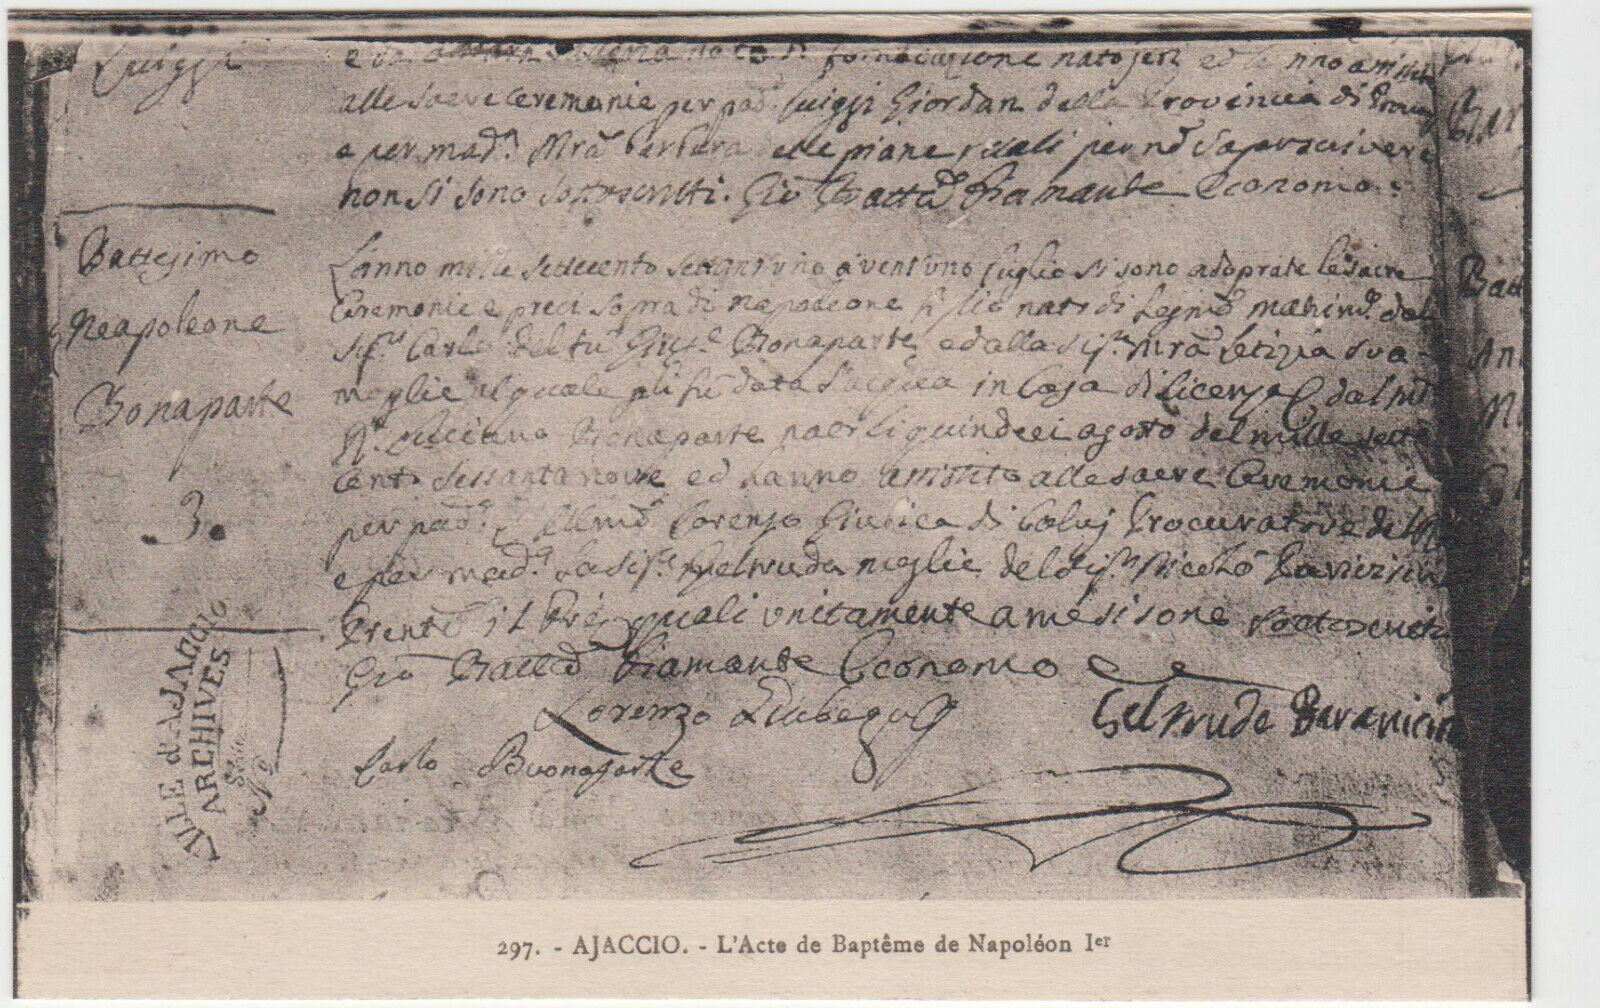 Luiggi
nato jeri ed hanno assistito
alle sacre ceremonie per pad.º Luiggi Giordan della Provincia di
e per mad.ª Mr̃a Barbara delle piane quali per nõ saper scrivere
non si sono sottoscritti. Gio Batt̃a Diamante Economo.
Battesimo
Neapoleone
Bonaparte
3.
L'anno mille settecento settant'uno a vent'uno luglio si sono adoprate le sacre
Ceremonie e preci sopra di Neapoleone figlio nato di legmõ matrimõ dal
Sig.r Carlo del fu Gius.e Bonaparte, ed alla Sig.ra Mr̃a Letizia sua
moglie al quale gli fu data l'acqua in Casa di licenza dal
R. Luciano Bonaparte nato li quindeci agosto del mille sette
cento sessanta nove ed hanno assistito alle sacre Ceremonie
per pad.º l'Illmõ Lorenzo Giubica di Calvi Procuratore del
e per mad.ª la Sig.ra Geltruda moglie del Sig.r Nicolò Paravicini
Presente il Pre, quali unitamente a me si sono sottoscritti
Gio Batt̃a Diamante Economo
Lorenzo Giubega
Geltruda Paravicini
Carlo Buonaparte
VILLE d'AJACCIO
ARCHIVES
Bat
An
297. - AJACCIO. - L'Acte de Baptême de Napoléon Ier